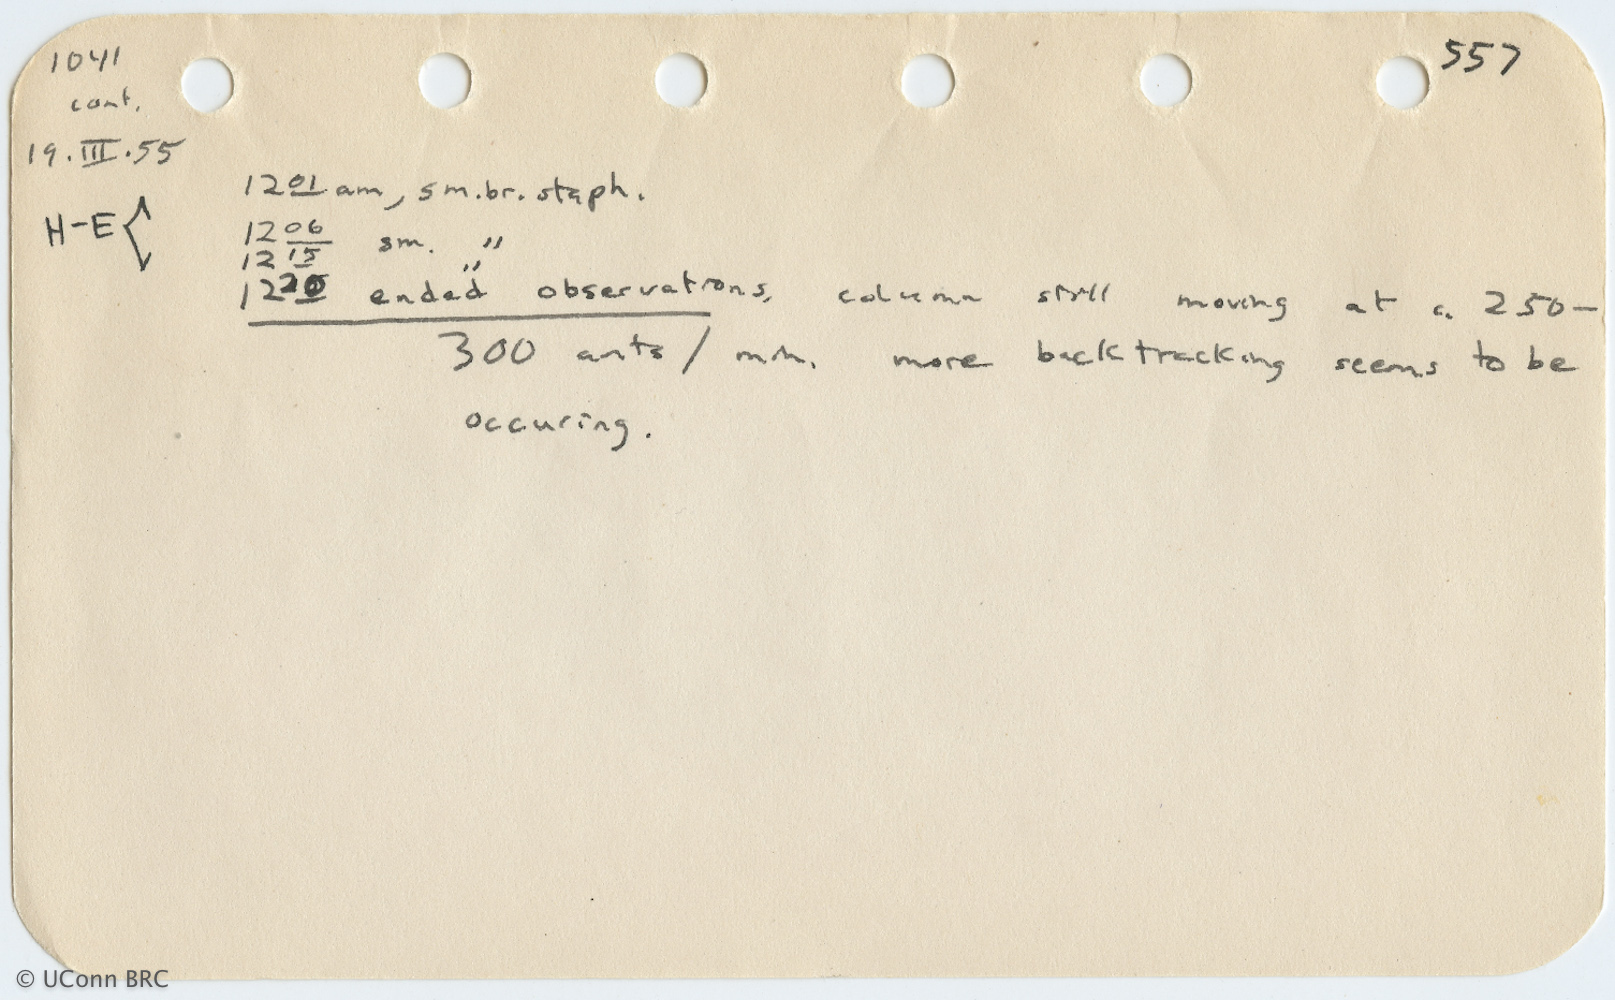 1041
557
cont.
19.III.55
1201 am, sm.br. staph.
H-E
1206 sm. "
1215 "
1220 ended observations, column still moving at a 250-
300 ants / min. more backtracking seems to be
occuring.
© UConn BRC